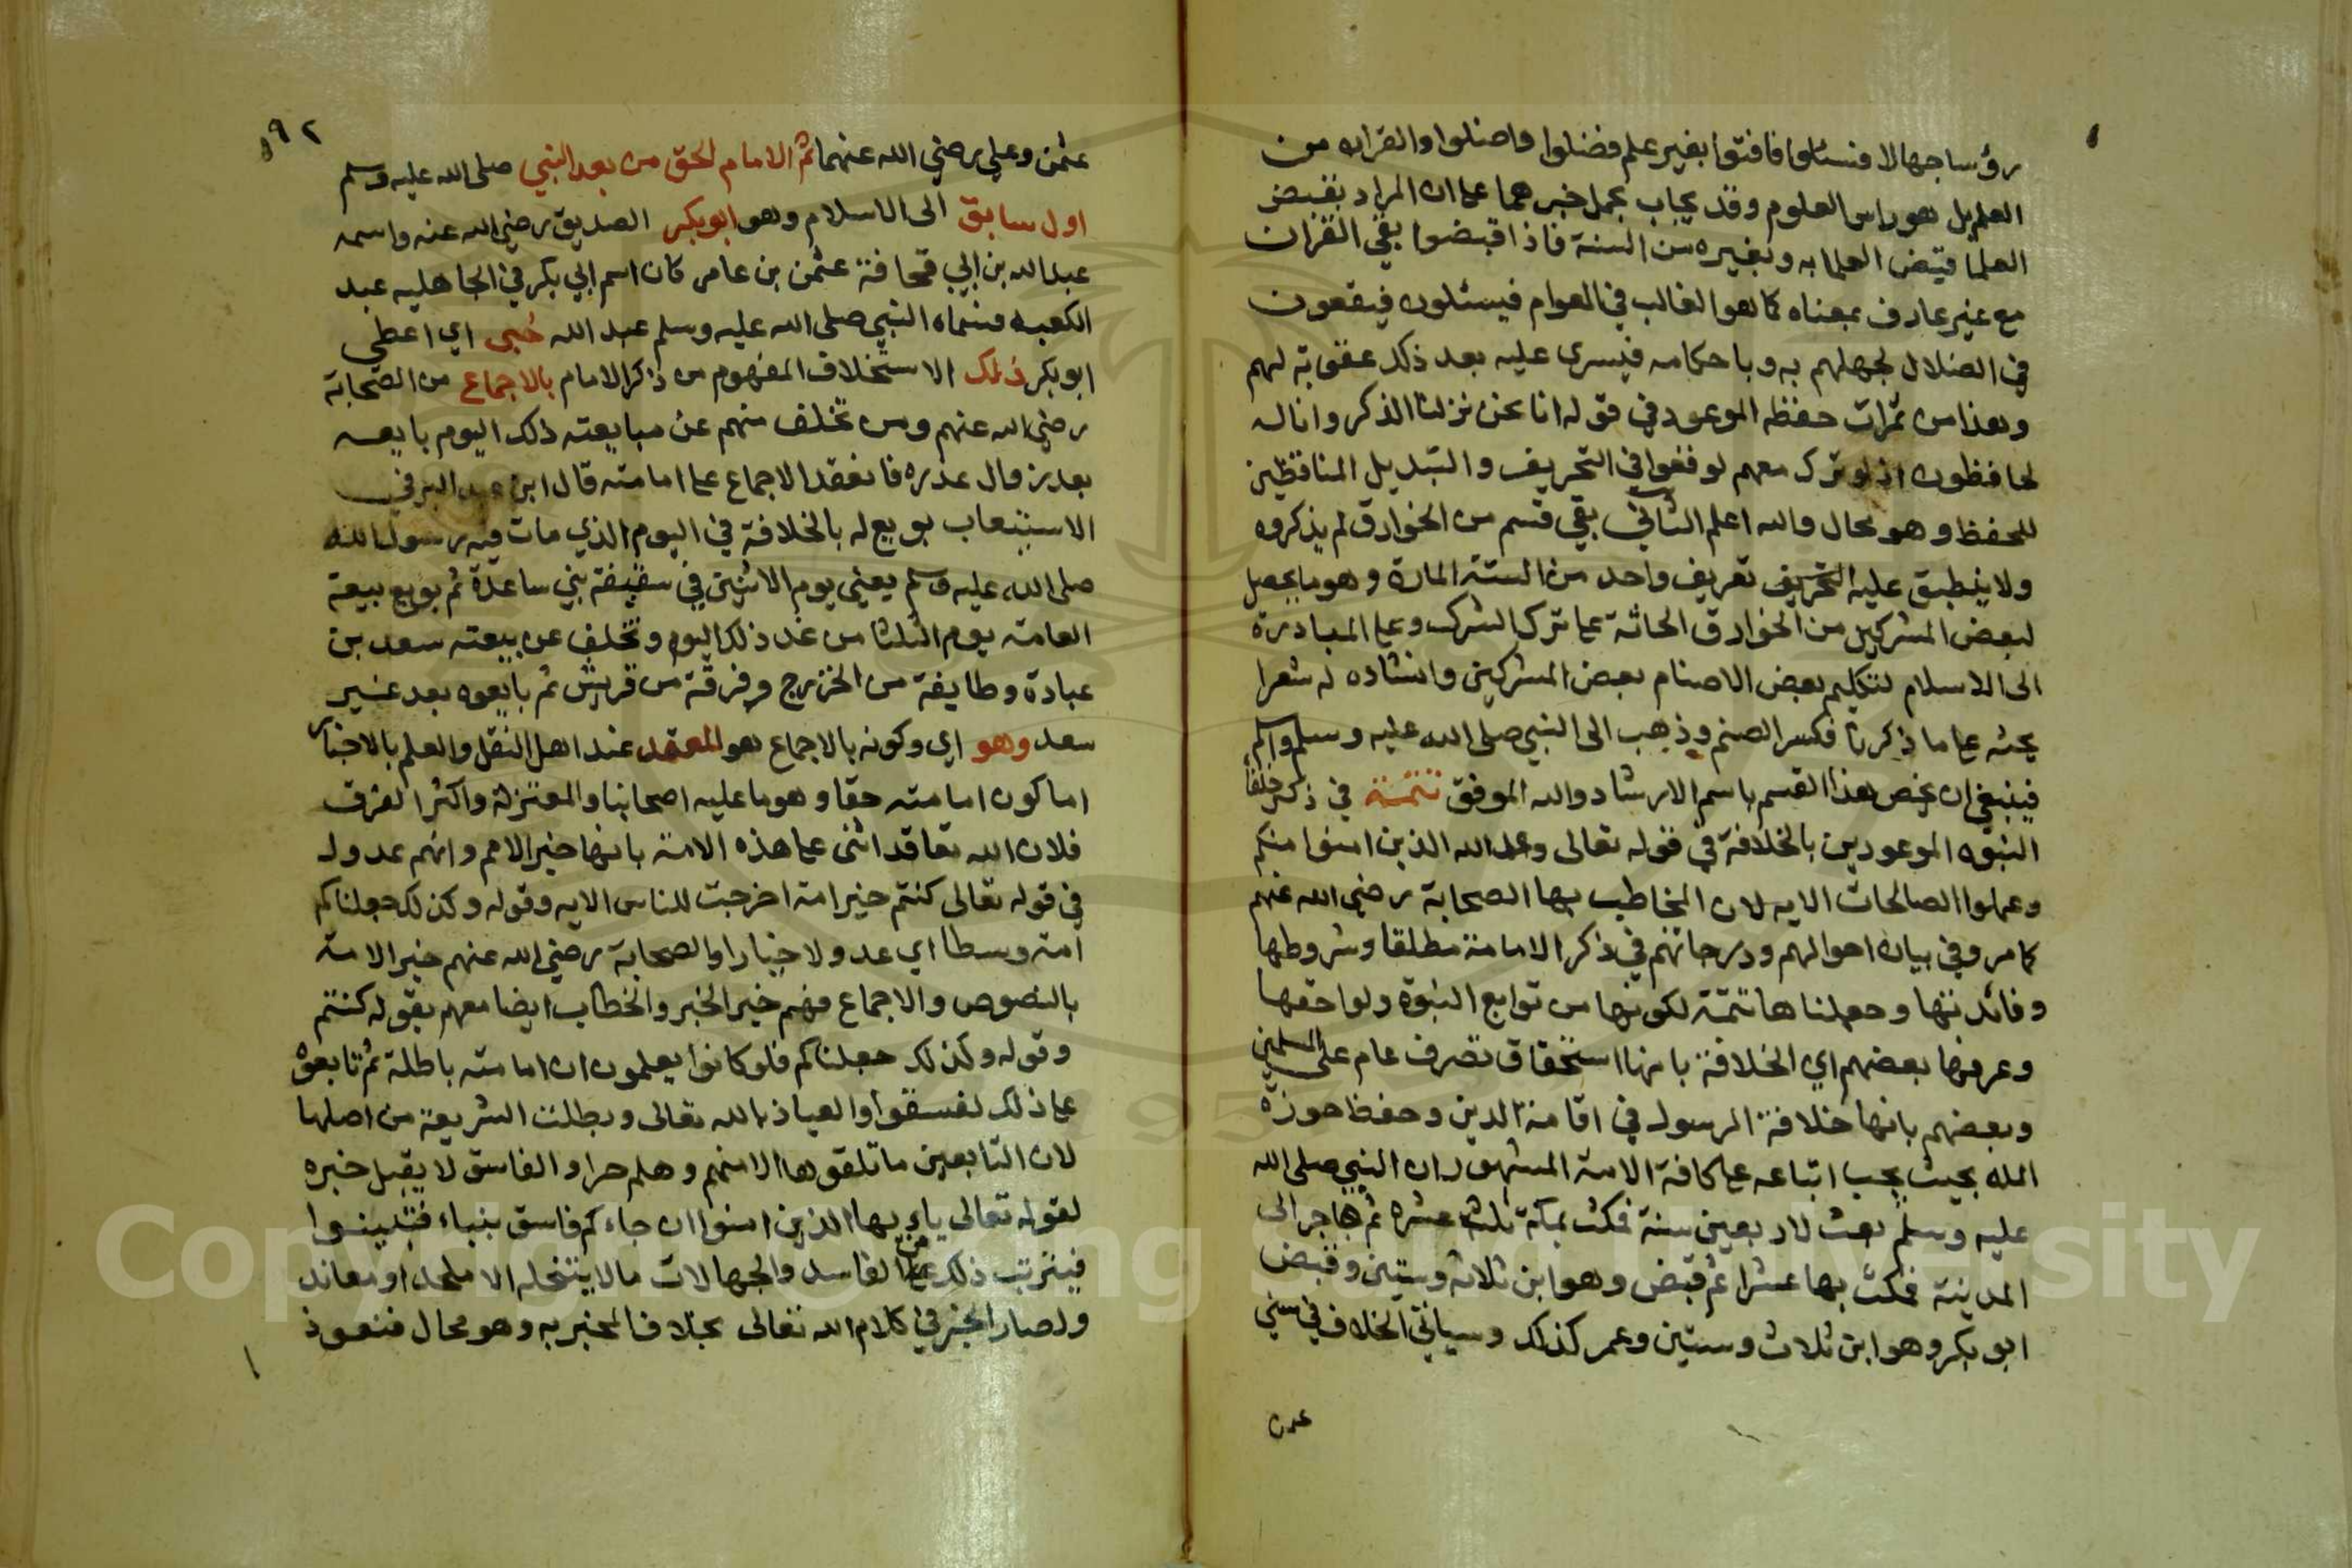 رؤسا جهالا فسئلوا فافتوا بغير علم فضلوا واضلوا والقران من
العلم بل هو راس العلوم وقد يجاب بحمل خبرهما على ان المراد بقبض
العلما قبض العلما به وبغيره من السنة فاذا اقبضوا بقي القران
مع غير عارف بمعناه كما هو الغالب في العوام فيسئلون فيقعون
في الضلال لجهلهم به وباحكامه فيسرى عليه بعد ذلك عقوبة لهم
وهذا من ثمرات حفظه الموعود في قوله انا نحن نزلنا الذكر وانا له
لحافظون اذ لو ترك معهم لوقعوا في التحريف والتبديل المنافيين
للحفظ وهو محال والله اعلم الثاني بقي قسم من الخوارق لم يذكروه
ولا ينطبق عليه تعريف واحد من الستة المارة وهو ما يحصل
لبعض المشركين من الخوارق الحاثة على ترك الشرك وعلى المبادرة
الى الاسلام لتكليم بعض الاصنام بعض المشركين وانشاده له شعرا
يحثه على ما ذكرنا فكسر الصنم وذهب الى النبي صلى الله عليه وسلم واسلم
فينبغي ان يخص هذا القسم باسم الارشاد والله الموفق تتمة في ذكر خلفا
النبوه الموعودين بالخلافة في قوله تعالى وعد الله الذين امنوا منكم
وعملوا الصالحات الايه لان المخاطب بها الصحابة رضي الله عنهم
كما مر وفي بيان احوالهم ودرجاتهم في ذكر الامامة مطلقا وشروطها
وفائدتها وجعلناها تتمة لكونها من توابع النبوة ولواحقها
وعرفها بعضهم اي الخلافة بانها استحقاق تصرف عام على المسلمين
وبعضهم بانها خلافة الرسول في اقامة الدين وحفظ حوزة
المله بحيث يجب اتباعه على كافة الامة المشهور ان النبي صلى الله
عليه وسلم بعث لاربعين سنة فمكث بمكة ثلث عشره ثم هاجر الى
المدينة فمكث بها عشرا ثم قبض وهو ابن ثلاث وستين وقبض
ابو بكر وهو ابن ثلاث وستين وعمر كذلك وسياتي الخلاف في سني
٥٩٢
عثمن وعلي رضي الله عنهما ثم الامام الحق من بعد النبي صلى الله عليه وسلم
اول سابق الى الاسلام وهو ابو بكر الصديق رضي الله عنه واسمه
عبد الله بن ابي قحافة عثمن بن عامر كان اسم ابي بكر في الجاهليه عبد
الكعبه فسماه النبي صلى الله عليه وسلم عبد الله حبى اي اعطى
ابو بكر ذلك الاستخلاف المفهوم من ذكر الامام بالاجماع من الصحابة
رضي الله عنهم ومن تخلف منهم عن مبايعته ذلك اليوم بايعه
بعد زوال عذره فانعقد الاجماع على امامته قال ابن عبد البر في
الاستيعاب بويع له بالخلافة في اليوم الذي مات فيه رسول الله
صلى الله عليه وسلم يعني يوم الاثنين في سقيفة بني ساعدة ثم بويع بيعة
العامة يوم الثلثا من غد ذلك اليوم وتخلف عن بيعته سعد بن
عبادة وطايفة من الخزرج وفرقة من قريش ثم بايعوه بعد غير
سعد وهو اي وكونه بالاجماع هو المعتمد عند اهل النقل والعلم بالاخبار
اما كون امامته حقا وهو ما عليه اصحابنا والمعتزلة واكثر الفرق
فلان الله تعا قد اثنى على هذه الامة بانها خير الامم وانهم عدول
في قوله تعالى كنتم خير امة اخرجت للناس الايه وقوله وكذلك جعلناكم
امة وسطا اي عدولا خيارا والصحابة رضي الله عنهم خير الامة
بالنصوص والاجماع فهم خير الخير والخطاب ايضا معهم بقوله كنتم
وقوله وكذلك جعلناكم فلو كانوا يعلمون ان امامته باطلة ثم تابعوه
على ذلك لفسقوا والعياذ بالله تعالى وبطلت الشريعة من اصلها
لان التابعين ما تلقوها الا منهم وهلم جرا والفاسق لا يقبل خبره
لقوله تعالى يا ايها الذين امنوا ان جاءكم فاسق بنباء فتبينوا
فيترتب على ذلك من الفاسد والجهالات ما لا ينتحله الا ملحد او معاند
ولصار الخبر في كلام الله تعالى بخلاف المخبر به وهو محال فنعوذ
Copyright © King Saud University